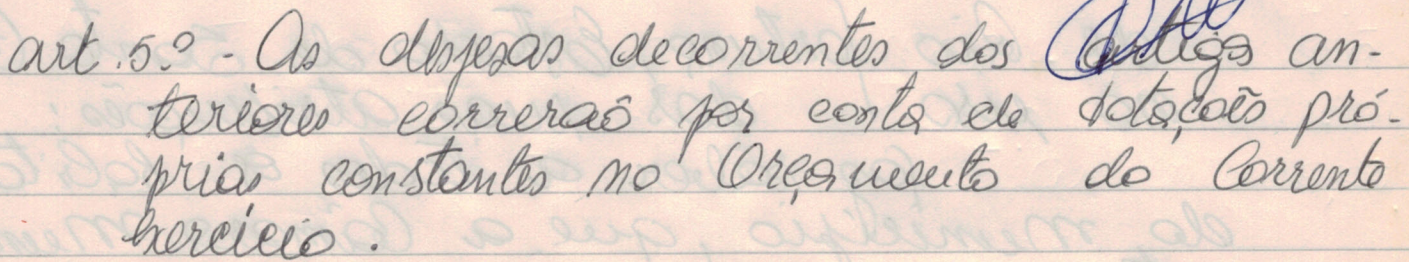 art. 5º - As despesas decorrentes dos artigos an-
teriores correrão por conta de dotações pró-
prias constantes no Orçamento do Corrente
Exercício.